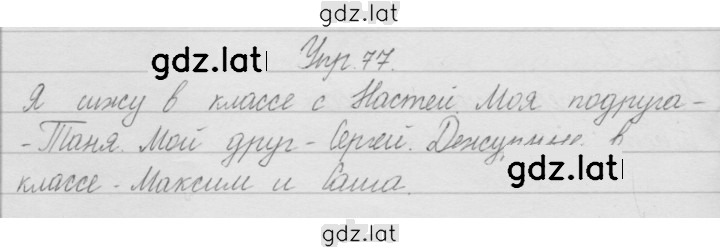 gdz.lat
gdz.lat Упр. 77. gdz.lat
Я сижу в классе с Настей Моя подруга -
- Таня. Мой друг - Сергей. Дежурные в
классе - Максим и Саша. gdz.lat
gdz.lat
gdz.lat